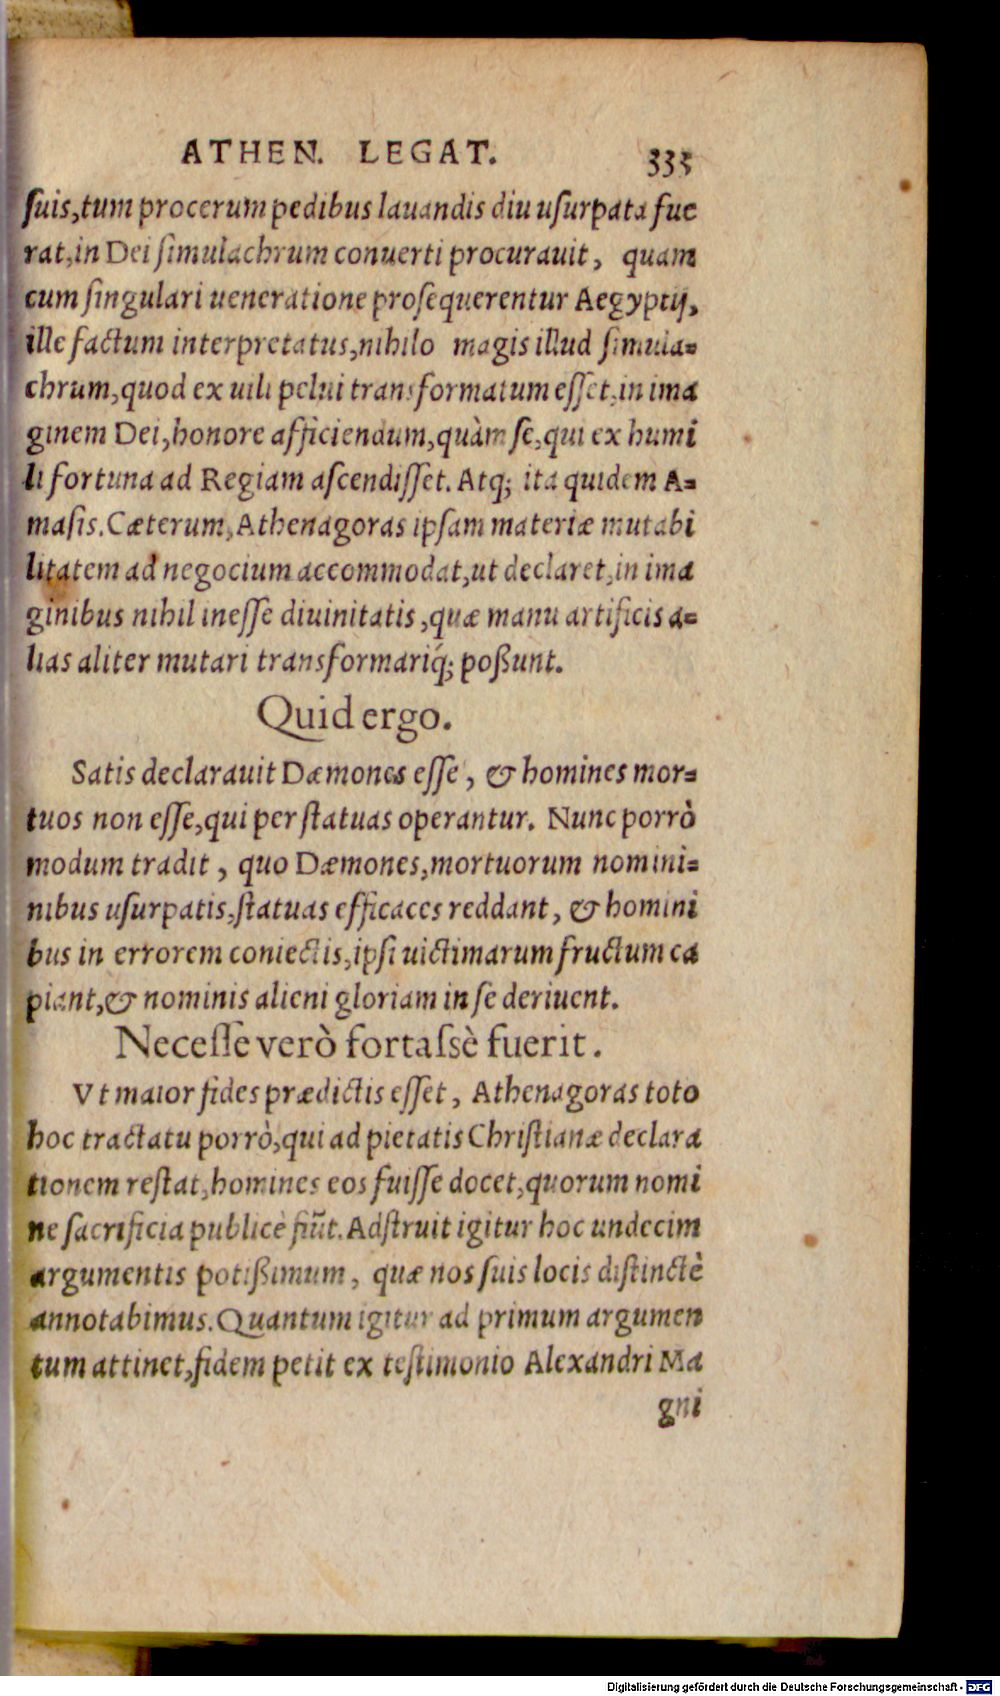 ATHEN. LEGAT. 335
suis, tum procerum pedibus lauandis diu usurpata fue
rat, in Dei simulachrum conuerti procurauit, quam
cum singulari ueneratione prosequerentur Aegyptij,
ille factum interpretatus, nihilo magis illud simula-
chrum, quod ex uili pelui transformatum esset, in ima
ginem Dei, honore afficiendum, quàm se, qui ex humi
li fortuna ad Regiam ascendisset. Atq; ita quidem A-
masis. Cæterum, Athenagoras ipsam materiæ mutabi
litatem ad negocium accommodat, ut declaret, in ima
ginibus nihil inesse diuinitatis, quæ manu artificis a-
lias aliter mutari transformariq́; poßunt.
Quid ergo.
Satis declarauit Dæmones esse, & homines mor-
tuos non esse, qui per statuas operantur. Nunc porrò
modum tradit, quo Dæmones, mortuorum nomini-
nibus usurpatis, statuas efficaces reddant, & homini
bus in errorem coniectis, ipsi uictimarum fructum ca
piant, & nominis alieni gloriam in se deriuent.
Necesse verò fortassè fuerit.
Vt maior fides prædictis esset, Athenagoras toto
hoc tractatu porrò, qui ad pietatis Christianæ declara
tionem restat, homines eos fuisse docet, quorum nomi
ne sacrificia publicè fiũt. Adstruit igitur hoc undecim
argumentis potißimum, quæ nos suis locis distinctè
annotabimus. Quantum igitur ad primum argumen
tum attinet, fidem petit ex testimonio Alexandri Ma
gni
Digitalisierung gefördert durch die Deutsche Forschungsgemeinschaft - DFG